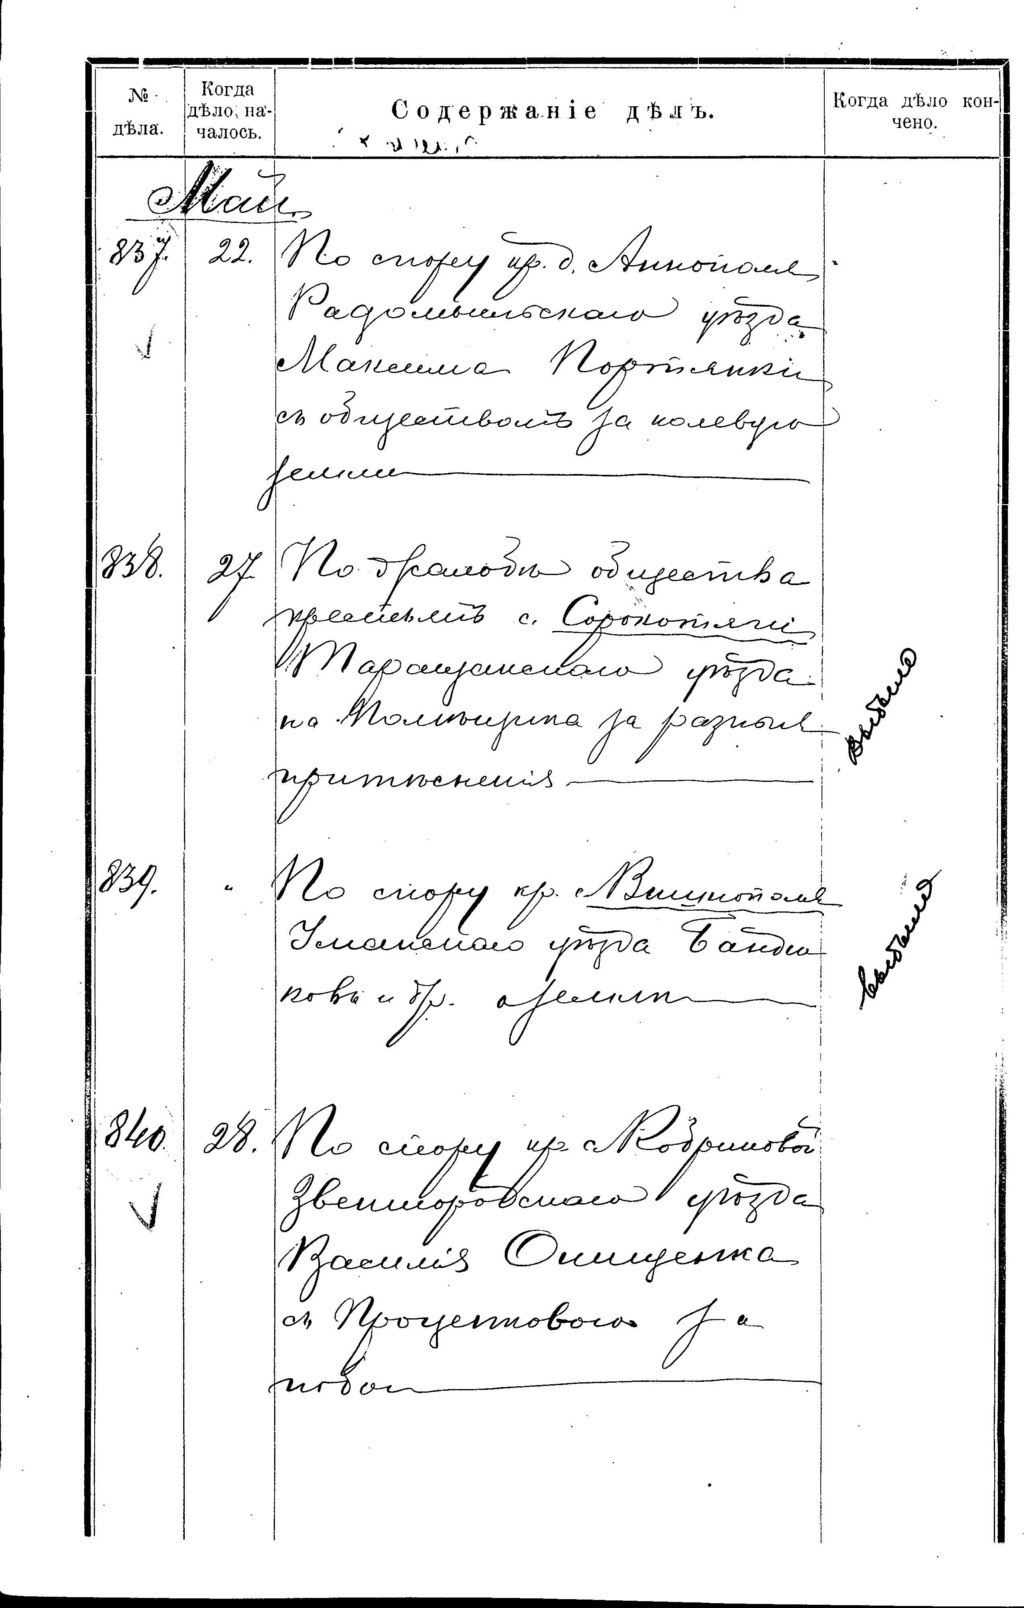 № дѣла.
Когда дѣло, на-
чалось.
Содержаніе дѣлъ.
Когда дѣло кон-
чено.
Май
837. 22. По спору кр. д. Аннополя
Радомысльскаго уѣзда
Максима Портянки
съ обществомъ за полевую
землю
838. 27 По жалобѣ общества
крестьянъ с. Сорокотяги
Таращанскаго уѣзда
на за разныя
притѣсненія
выбыло
839. " По спору кр. с. Вишнополя
Уманскаго уѣзда
и др. о землѣ
выбыло
840. 28. По спору кр. с. Кобриновой
Звенигородскаго уѣзда
Василія Онищенка
съ за